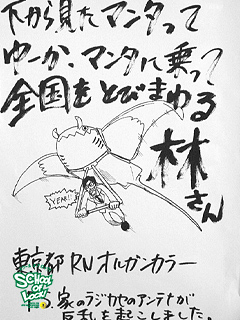 下から見たマンタって
ゆーか、マンタに乗って
全国をとびまわる
林さん
YEAH!
東京都 RN オルガンカラー
SCHOOL OF LOCK!
家のラジカセのアンテナが
反乱を起こしました。